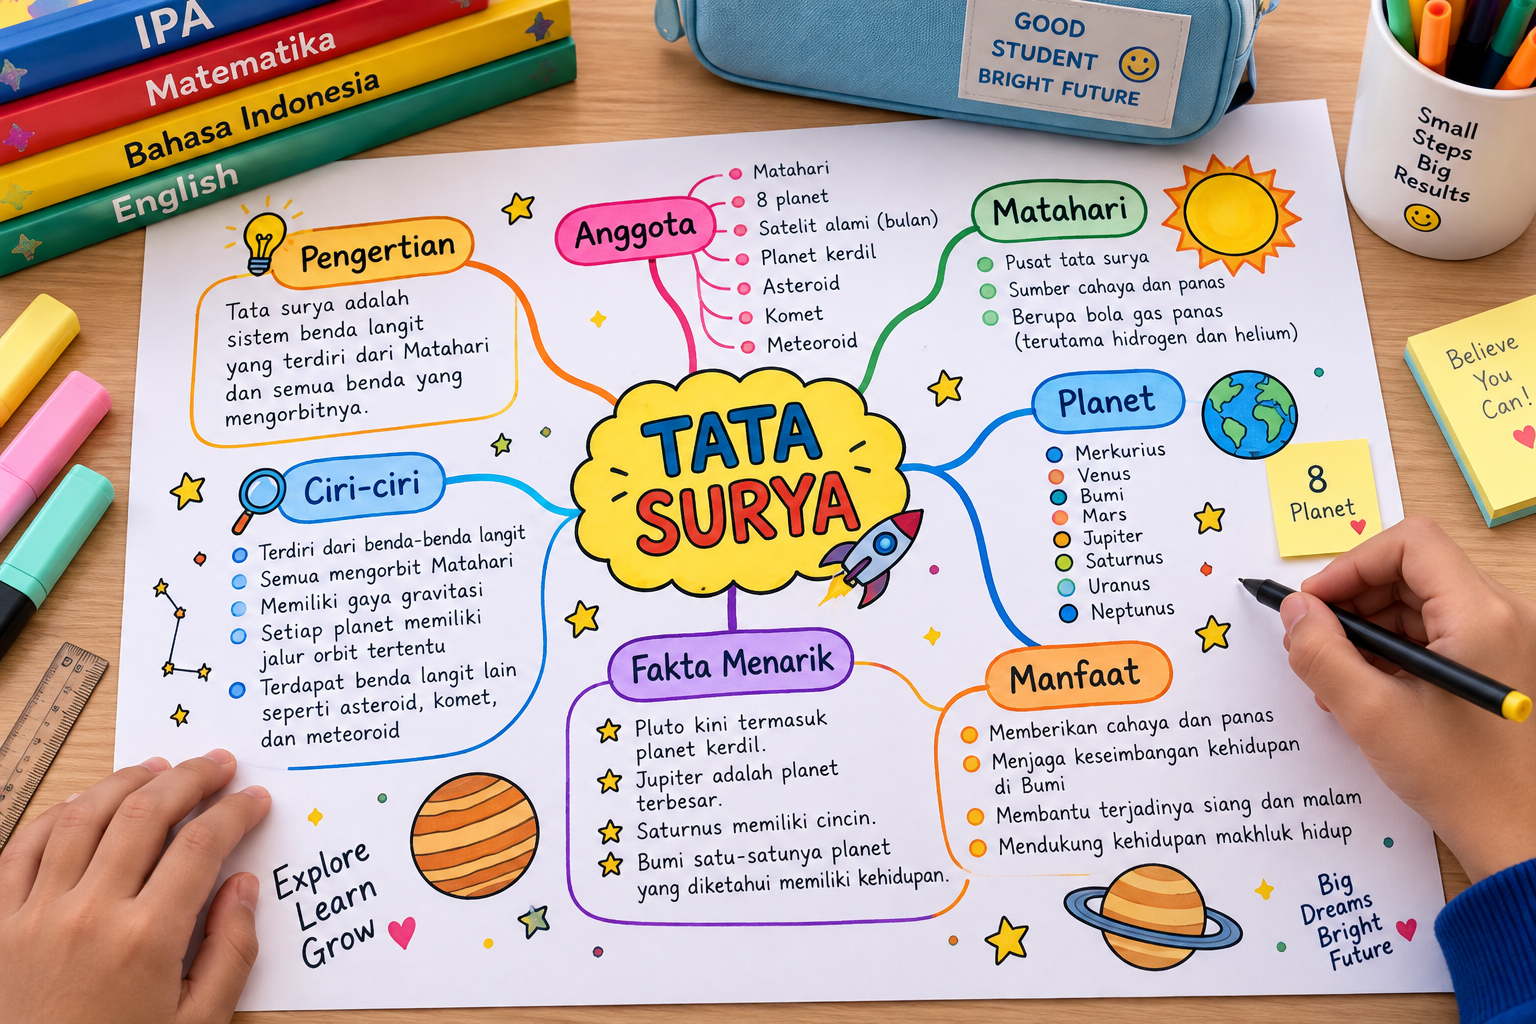 IPA
Matematika
Bahasa Indonesia
English
GOOD
STUDENT
BRIGHT FUTURE
Small
Steps
Big
Results
Believe
You
Can!
Pengertian
Tata surya adalah
sistem benda langit
yang terdiri dari Matahari
dan semua benda yang
mengorbitnya.
Anggota
Matahari
8 planet
Satelit alami (bulan)
Planet kerdil
Asteroid
Komet
Meteoroid
Matahari
Pusat tata surya
Sumber cahaya dan panas
Berupa bola gas panas
(terutama hidrogen dan helium)
TATA
SURYA
Ciri-ciri
Terdiri dari benda-benda langit
Semua mengorbit Matahari
Memiliki gaya gravitasi
Setiap planet memiliki
jalur orbit tertentu
Terdapat benda langit lain
seperti asteroid, komet,
dan meteoroid
Planet
Merkurius
Venus
Bumi
Mars
Jupiter
Saturnus
Uranus
Neptunus
8
Planet
Fakta Menarik
Pluto kini termasuk
planet kerdil.
Jupiter adalah planet
terbesar.
Saturnus memiliki cincin.
Bumi satu-satunya planet
yang diketahui memiliki kehidupan.
Manfaat
Memberikan cahaya dan panas
Menjaga keseimbangan kehidupan
di Bumi
Membantu terjadinya siang dan malam
Mendukung kehidupan makhluk hidup
Explore
Learn
Grow
Big
Dreams
Bright
Future